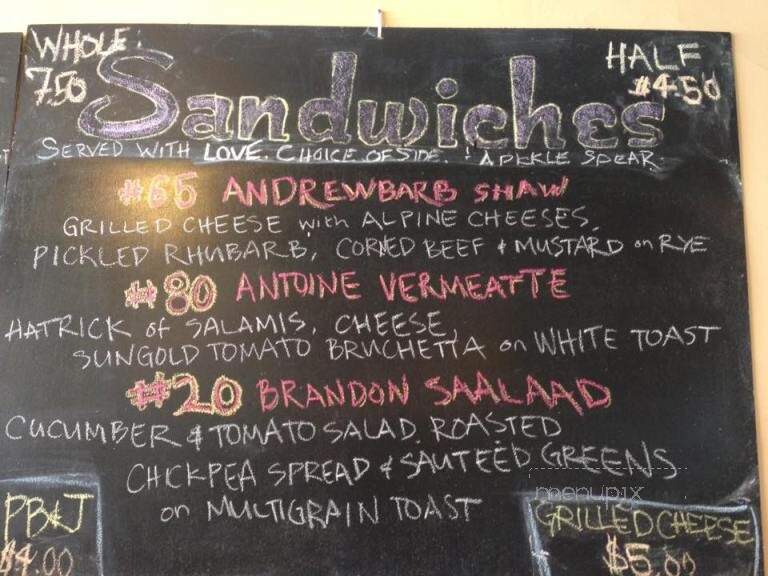 WHOLE
7.50
Sandwiches
HALF
$4.50
SERVED WITH LOVE. CHOICE OF SIDE. & A PICKLE SPEAR.
#65 ANDREWBARB SHAW
GRILLED CHEESE with ALPINE CHEESES,
PICKLED RHUBARB, CORNED BEEF & MUSTARD on RYE
#80 ANTOINE VERMEATTE
HATRICK of SALAMIS, CHEESE,
SUNGOLD TOMATO BRUCHETTA on WHITE TOAST
#20 BRANDON SAALAAD
CUCUMBER & TOMATO SALAD. ROASTED
CHICKPEA SPREAD & SAUTEED GREENS
on MULTIGRAIN TOAST
PB&J
$4.00
menupix
GRILLED CHEESE
$5.00